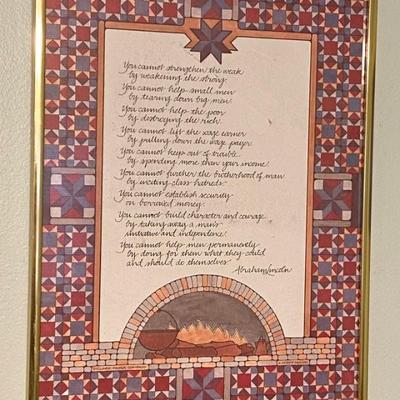 You cannot strengthen the weak
by weakening the strong.
You cannot help small men
by tearing down big men.
You cannot help the poor
by destroying the rich.
You cannot lift the wage earner
by pulling down the wage payer.
You cannot keep out of trouble
by spending more than your income.
You cannot further the brotherhood of man
by inciting class hatreds.
You cannot establish security
on borrowed money.
You cannot build character and courage
by taking away a man's
initiative and independence.
You cannot help men permanently
by doing for them what they could
and should do themselves.
Abraham Lincoln